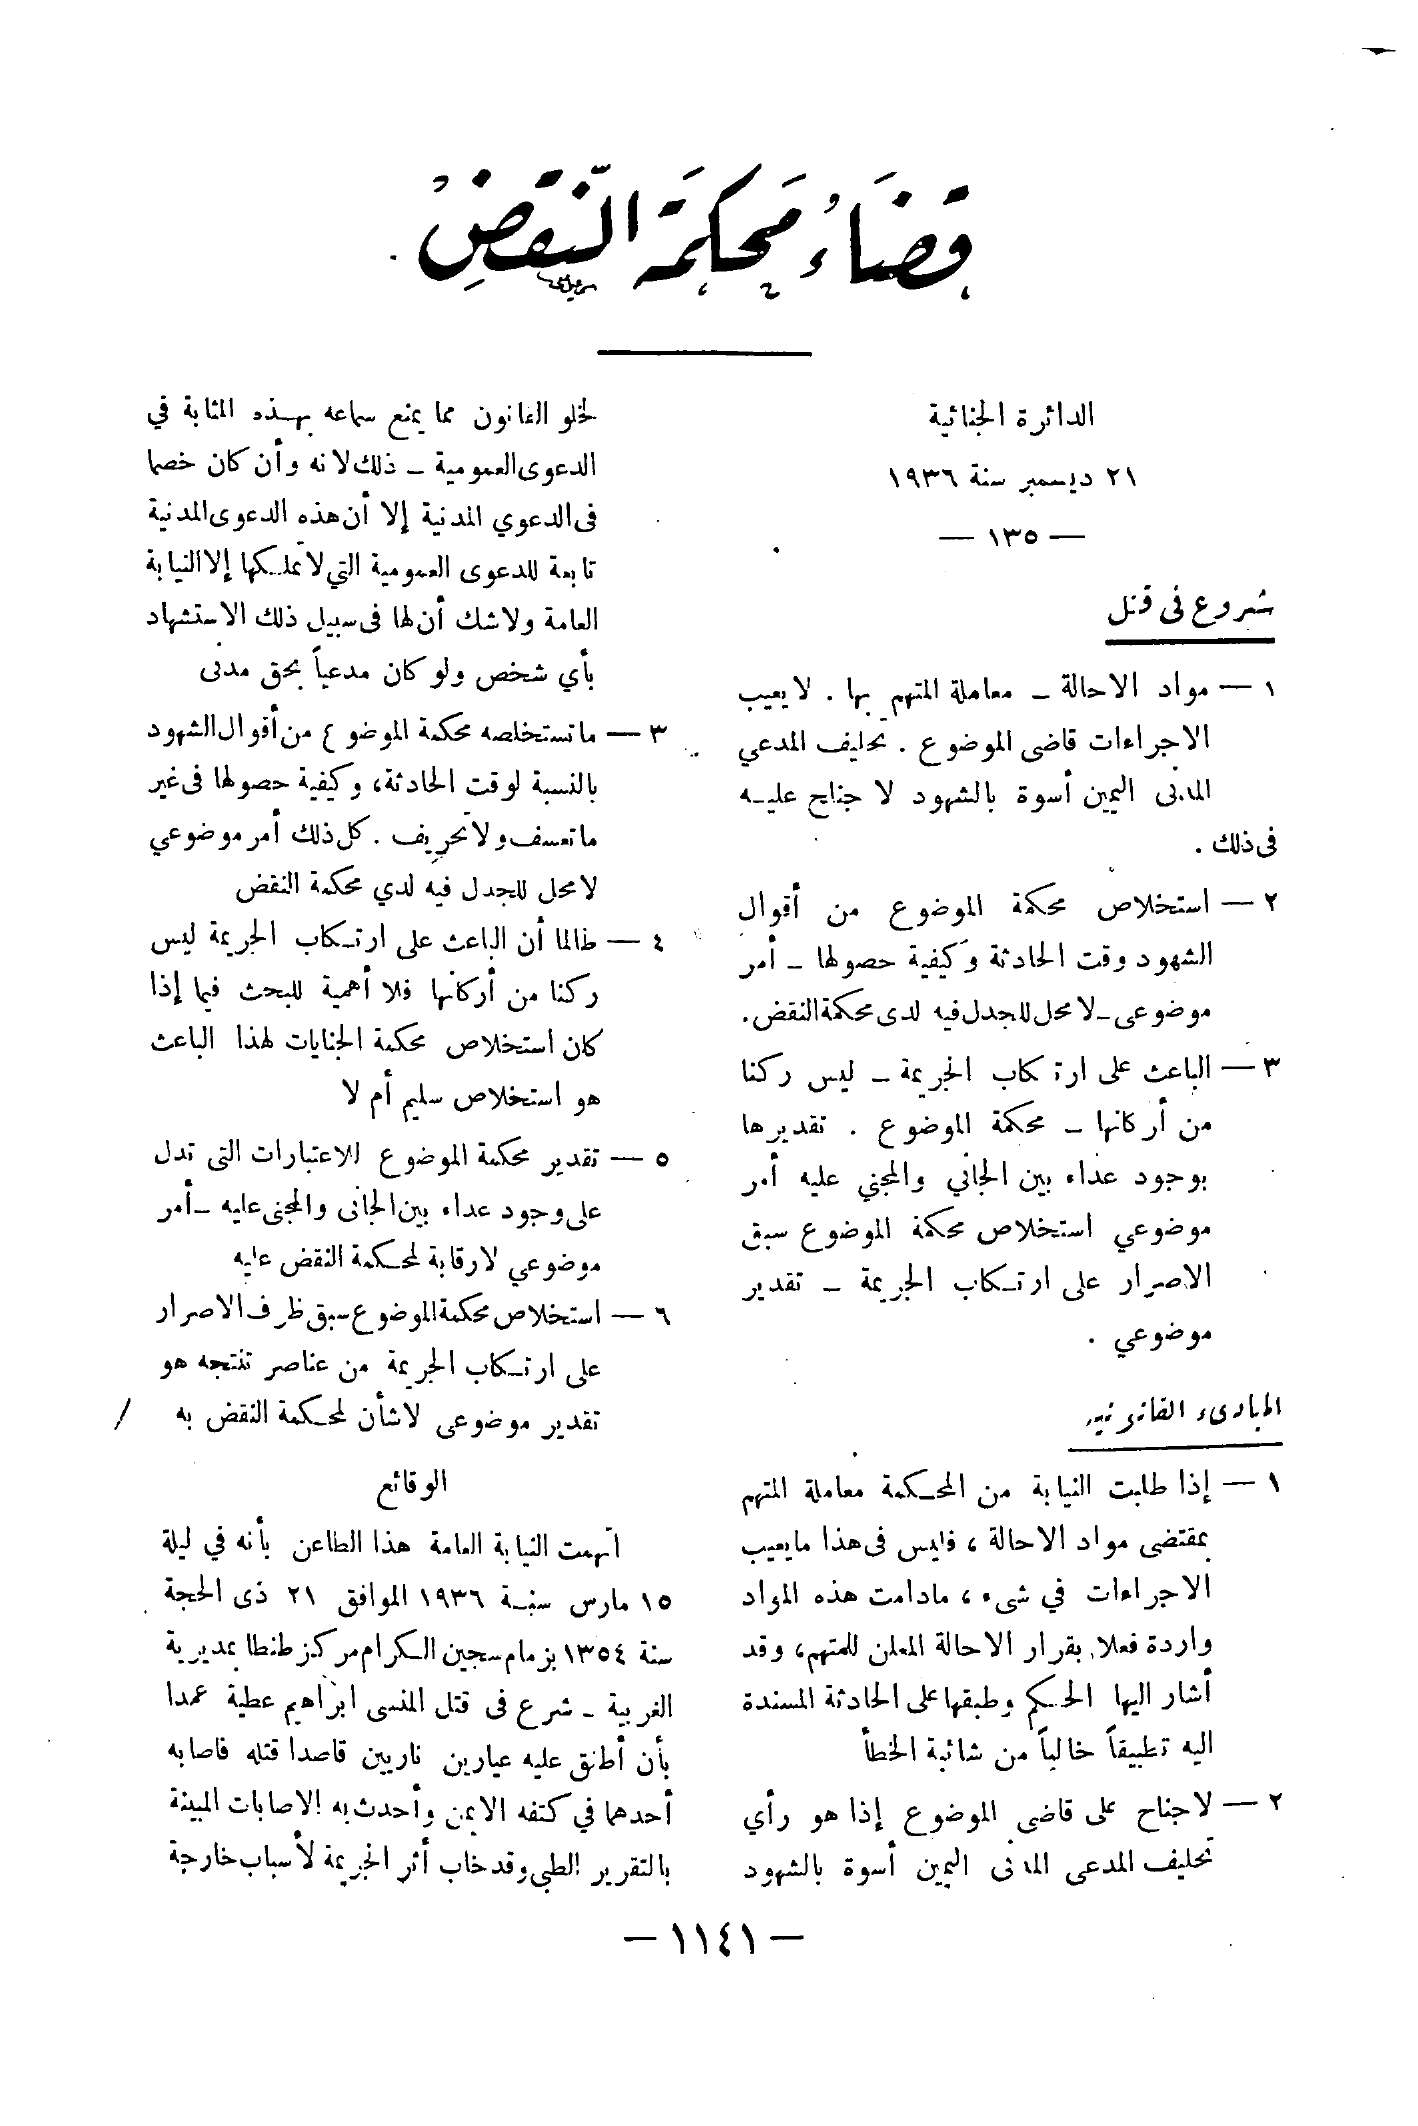 قضاء محكمة النقض
الدائرة الجنائية
٢١ ديسمبر سنة ١٩٣٦
— ١٣٥ —
شروع فى قتل
١ — مواد الاحالة – معاملة المتهم بها . لا يعيب
الاجراءات قاضى الموضوع . تحليف المدعي
المدنى اليمين أسوة بالشهود لا جناح عليه
فى ذلك .
٢ — استخلاص محكمة الموضوع من أقوال
الشهود وقت الحادثة وكيفية حصولها – أمر
موضوعى – لا محل للجدل فيه لدى محكمة النقض.
٣ — الباعث على ارتكاب الجريمة – ليس ركنا
من أركانها – محكمة الموضوع . تقديرها
بوجود عداء بين الجاني والمجني عليه أمر
موضوعي استخلاص محكمة الموضوع سبق
الاصرار على ارتكاب الجريمة – تقدير
موضوعي .
المبادىء القانونية
١ — إذا طلبت النيابة من المحكمة معاملة المتهم
بمقتضى مواد الاحالة ، فليس فى هذا ما يعيب
الاجراءات في شىء ، مادامت هذه المواد
واردة فعلا بقرار الاحالة المعلن للمتهم، وقد
أشار اليها الحكم وطبقها على الحادثة المسندة
اليه تطبيقاً خالياً من شائبة الخطأ
٢ — لا جناح على قاضى الموضوع إذا هو رأي
تحليف المدعى المدنى اليمين أسوة بالشهود
لخلو القانون مما يمنع سماعه بهذه المثابة في
الدعوى العمومية – ذلك لانه وأن كان خصما
فى الدعوي المدنية إلا أن هذه الدعوى المدنية
تابعة للدعوى العمومية التي لا تملكها إلا النيابة
العامة ولا شك أن لها فى سبيل ذلك الاستشهاد
بأي شخص ولو كان مدعياً بحق مدنى
٣ — ما تستخلصه محكمة الموضوع من أقوال الشهود
بالنسبة لوقت الحادثة، وكيفية حصولها فى غير
ما تعسف ولا تحريف . كل ذلك أمر موضوعي
لا محل للجدل فيه لدي محكمة النقض
٤ — طالما أن الباعث على ارتكاب الجريمة ليس
ركنا من أركانها فلا أهمية للبحث فيما إذا
كان استخلاص محكمة الجنايات لهذا الباعث
هو استخلاص سليم أم لا
٥ — تقدير محكمة الموضوع للاعتبارات التى تدل
على وجود عداء بين الجانى والمجنى عليه – أمر
موضوعي لا رقابة لمحكمة النقض عليه
٦ — استخلاص محكمة الموضوع سبق ظرف الاصرار
على ارتكاب الجريمة من عناصر تنتجه هو
تقدير موضوعى لا شأن لمحكمة النقض به
الوقائع
اتهمت النيابة العامة هذا الطاعن بأنه في ليلة
١٥ مارس سنة ١٩٣٦ الموافق ٢١ ذى الحجة
سنة ١٣٥٤ بزمام سجين الكرام مركز طنطا بمديرية
الغربية – شرع فى قتل المنسى ابراهيم عطية عمدا
بأن أطلق عليه عيارين ناريين قاصدا قتله فاصابه
أحدهما في كتفه الايمن وأحدث به الاصابات المبينة
بالتقرير الطبي وقد خاب أثر الجريمة لأسباب خارجة
— ١١٤١ —